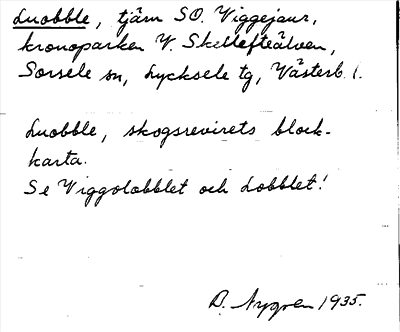 Luobble, tjärn SO. Viggejaur,
kronoparken V. Skellefteälven,
Sorsele sn, Lycksele tg, Västerb. l.
Luobble, skogsrevirets block-
karta.
Se Viggolobblet och Lobblet!
D. Nygren 1935.